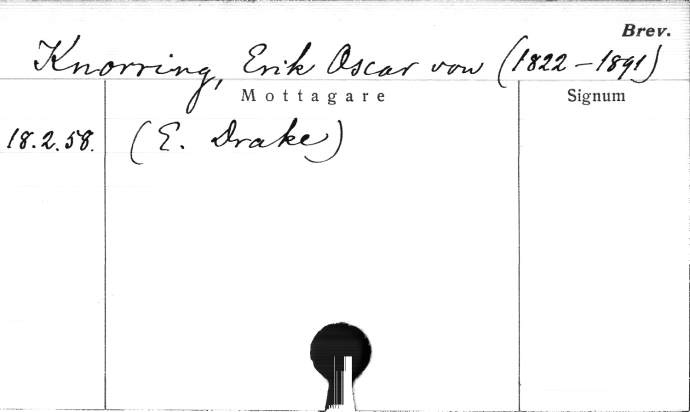 Brev.
Knorring, Erik Oscar von (1822-1891)
Mottagare Signum
18.2.58. (E. Drake)